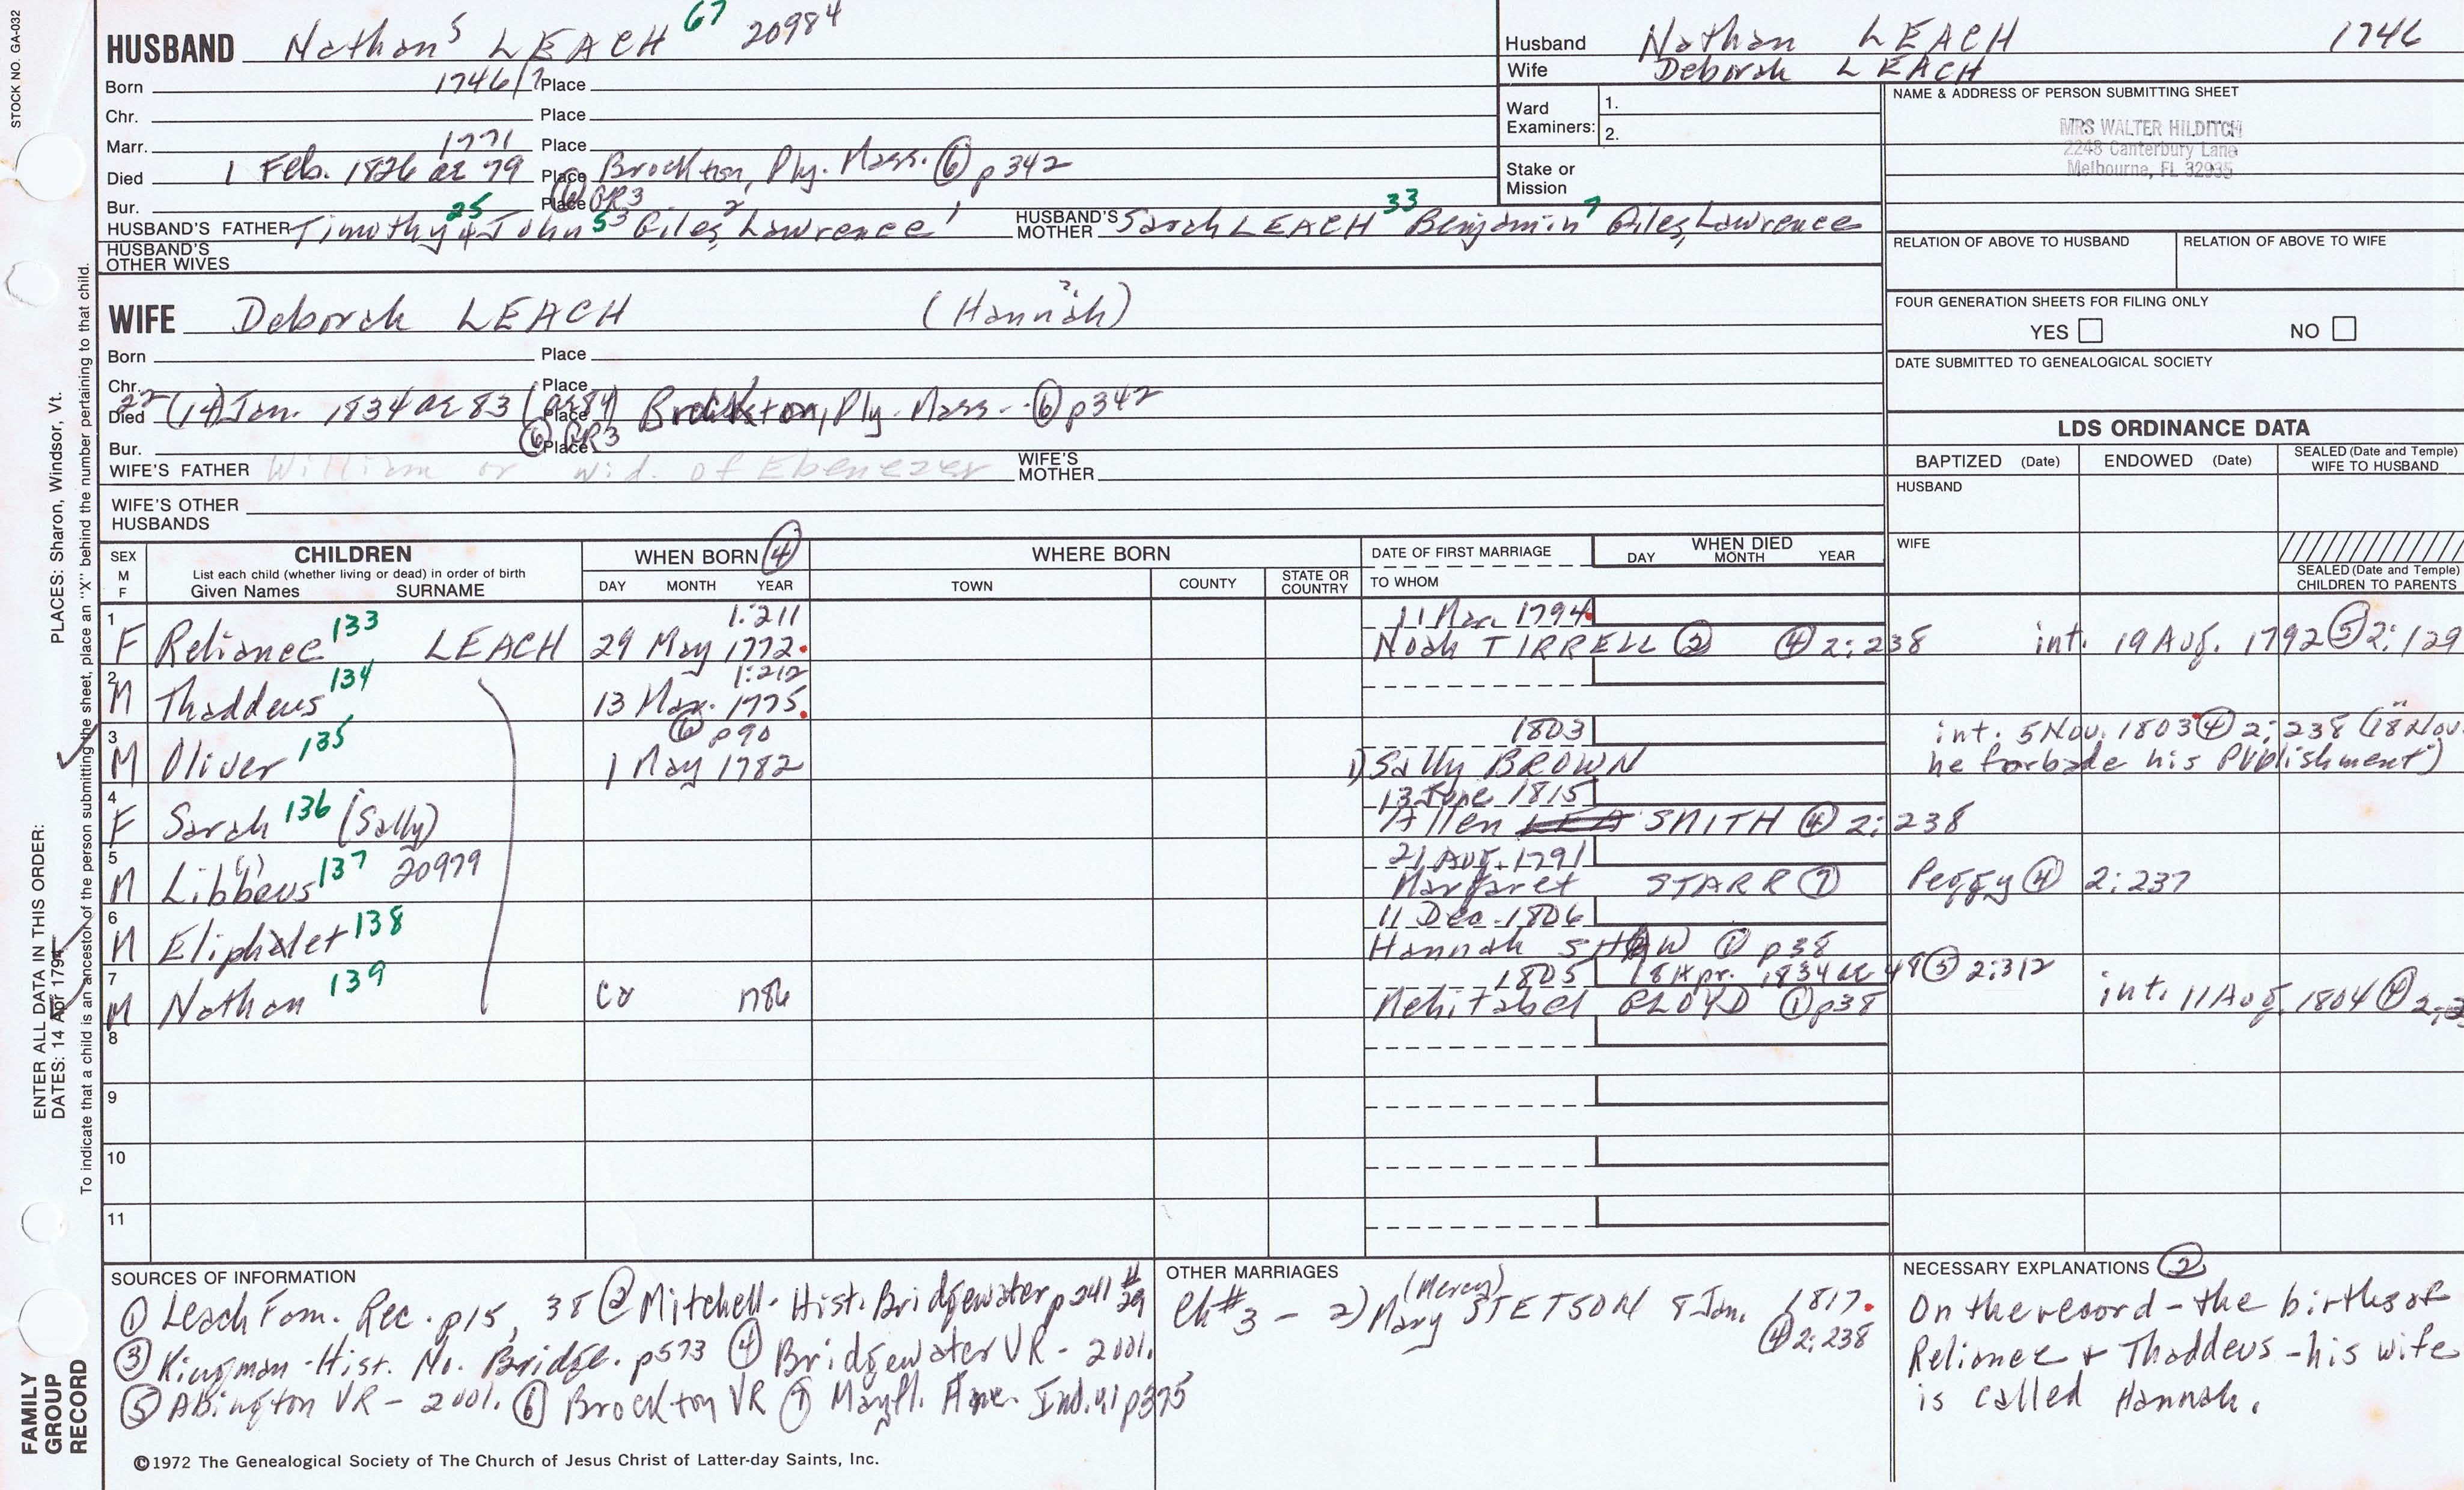 STOCK NO. GA-032
HUSBAND Nathan 5 LEACH 67 20984
Born 1746/7 Place
Chr. Place
Marr. 1771 Place
Died 1 Feb. 1826 ae 79 Place Brockton, Ply. Mass. (6) p342
Bur. Place (6) GR3
HUSBAND'S FATHER Timothy 25 4 John 53 3 Giles 2 Lawrence 1 HUSBAND'S MOTHER Sarah LEACH 33 Benjamin 7 Giles, Lawrence
HUSBAND'S OTHER WIVES
Husband Nathan LEACH 1746
Wife Deborah LEACH
Ward Examiners: 1.
2.
Stake or Mission
NAME & ADDRESS OF PERSON SUBMITTING SHEET
MRS WALTER HILDITCH
2248 Canterbury Lane
Melbourne, FL 32935
RELATION OF ABOVE TO HUSBAND RELATION OF ABOVE TO WIFE
FOUR GENERATION SHEETS FOR FILING ONLY
YES NO
DATE SUBMITTED TO GENEALOGICAL SOCIETY
WIFE Deborah LEACH (Hannah) ?
Born Place
Chr. Place
Died 22 (14) Jan. 1834 ae 83 (ae 84) Place Brockton, Ply. Mass. - (6) p342
Bur. Place (6) GR3
WIFE'S FATHER William or wid. of Ebenezer WIFE'S MOTHER
WIFE'S OTHER HUSBANDS
LDS ORDINANCE DATA
BAPTIZED (Date) ENDOWED (Date) SEALED (Date and Temple) WIFE TO HUSBAND
HUSBAND
WIFE
SEALED (Date and Temple) CHILDREN TO PARENTS
SEX M F CHILDREN
List each child (whether living or dead) in order of birth
Given Names SURNAME
WHEN BORN (4)
DAY MONTH YEAR
WHERE BORN
TOWN COUNTY STATE OR COUNTRY
DATE OF FIRST MARRIAGE
TO WHOM
WHEN DIED
DAY MONTH YEAR
1 1:211 11 Mar. 1794
F Reliance 133 LEACH 29 May 1772 Noah TIRRELL (2) (4) 2:238 int. 19 Aug. 1792 (5) 2:129
2 1:212
M Thaddeus 134 13 Mar. 1775
3 (6) p90 1803 int. 5 Nov. 1803 (4) 2:238 ("18 Nov.
M Oliver 135 1 May 1782 1) Sally BROWN he forbade his publishment")
4 13 June 1815
F Sarah 136 (Sally) Allen SMITH (4) 2:238
5 21 Aug. 1791
M Libbeus 137 20979 Margaret STARR (7) Peggy (4) 2:237
6 11 Dec. 1806
M Eliphalet 138 Hannah SHAW (1) p38
7 1805 18 Apr. 1834 ae 48 (5) 2:312
M Nathan 139 ca 1786 Mehitabel BLOYD (1) p38 int. 11 Aug. 1804 (4)
8
9
10
11
SOURCES OF INFORMATION
(1) Leach Fam. Rec. p15, 38 (2) Mitchell - Hist. Bridgewater p241 #29
(3) Kingman - Hist. No. Bridge. p573 (4) Bridgewater VR - 2 vol.
(5) Abington VR - 2 vol. (6) Brockton VR (7) Mayfl. p375
OTHER MARRIAGES
Ch #3 - 2) Mary (Mercy) STETSON 8 Jan. 1817.
(4) 2:238
NECESSARY EXPLANATIONS (2)
On the record - the births of
Reliance + Thaddeus - his wife
is called Hannah.
©1972 The Genealogical Society of The Church of Jesus Christ of Latter-day Saints, Inc.
FAMILY GROUP RECORD
ENTER ALL DATA IN THIS ORDER:
DATES: 14 Apr 1794
PLACES: Sharon, Windsor, Vt.
To indicate that a child is an ancestor of the person submitting the sheet, place an "X" behind the number pertaining to that child.